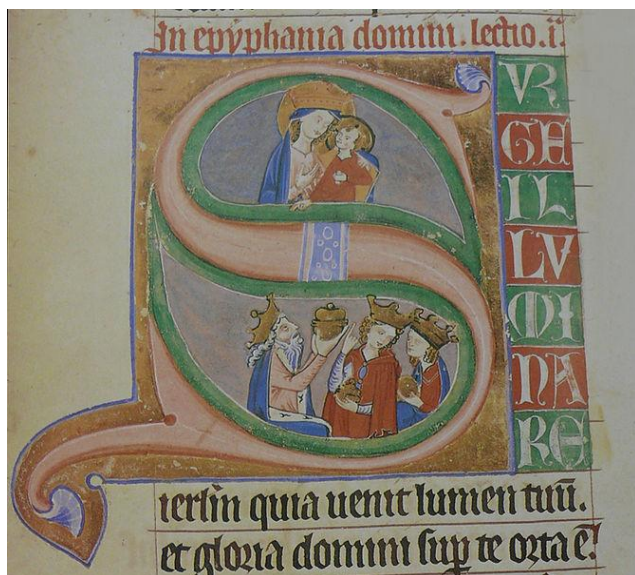 In epyphania domini. lectio. ii.
S
VR
GE
IL
LV
MI
NA
RE
ierlm quia uenit lumen tuū.
et gloria domini sup te orta ē.